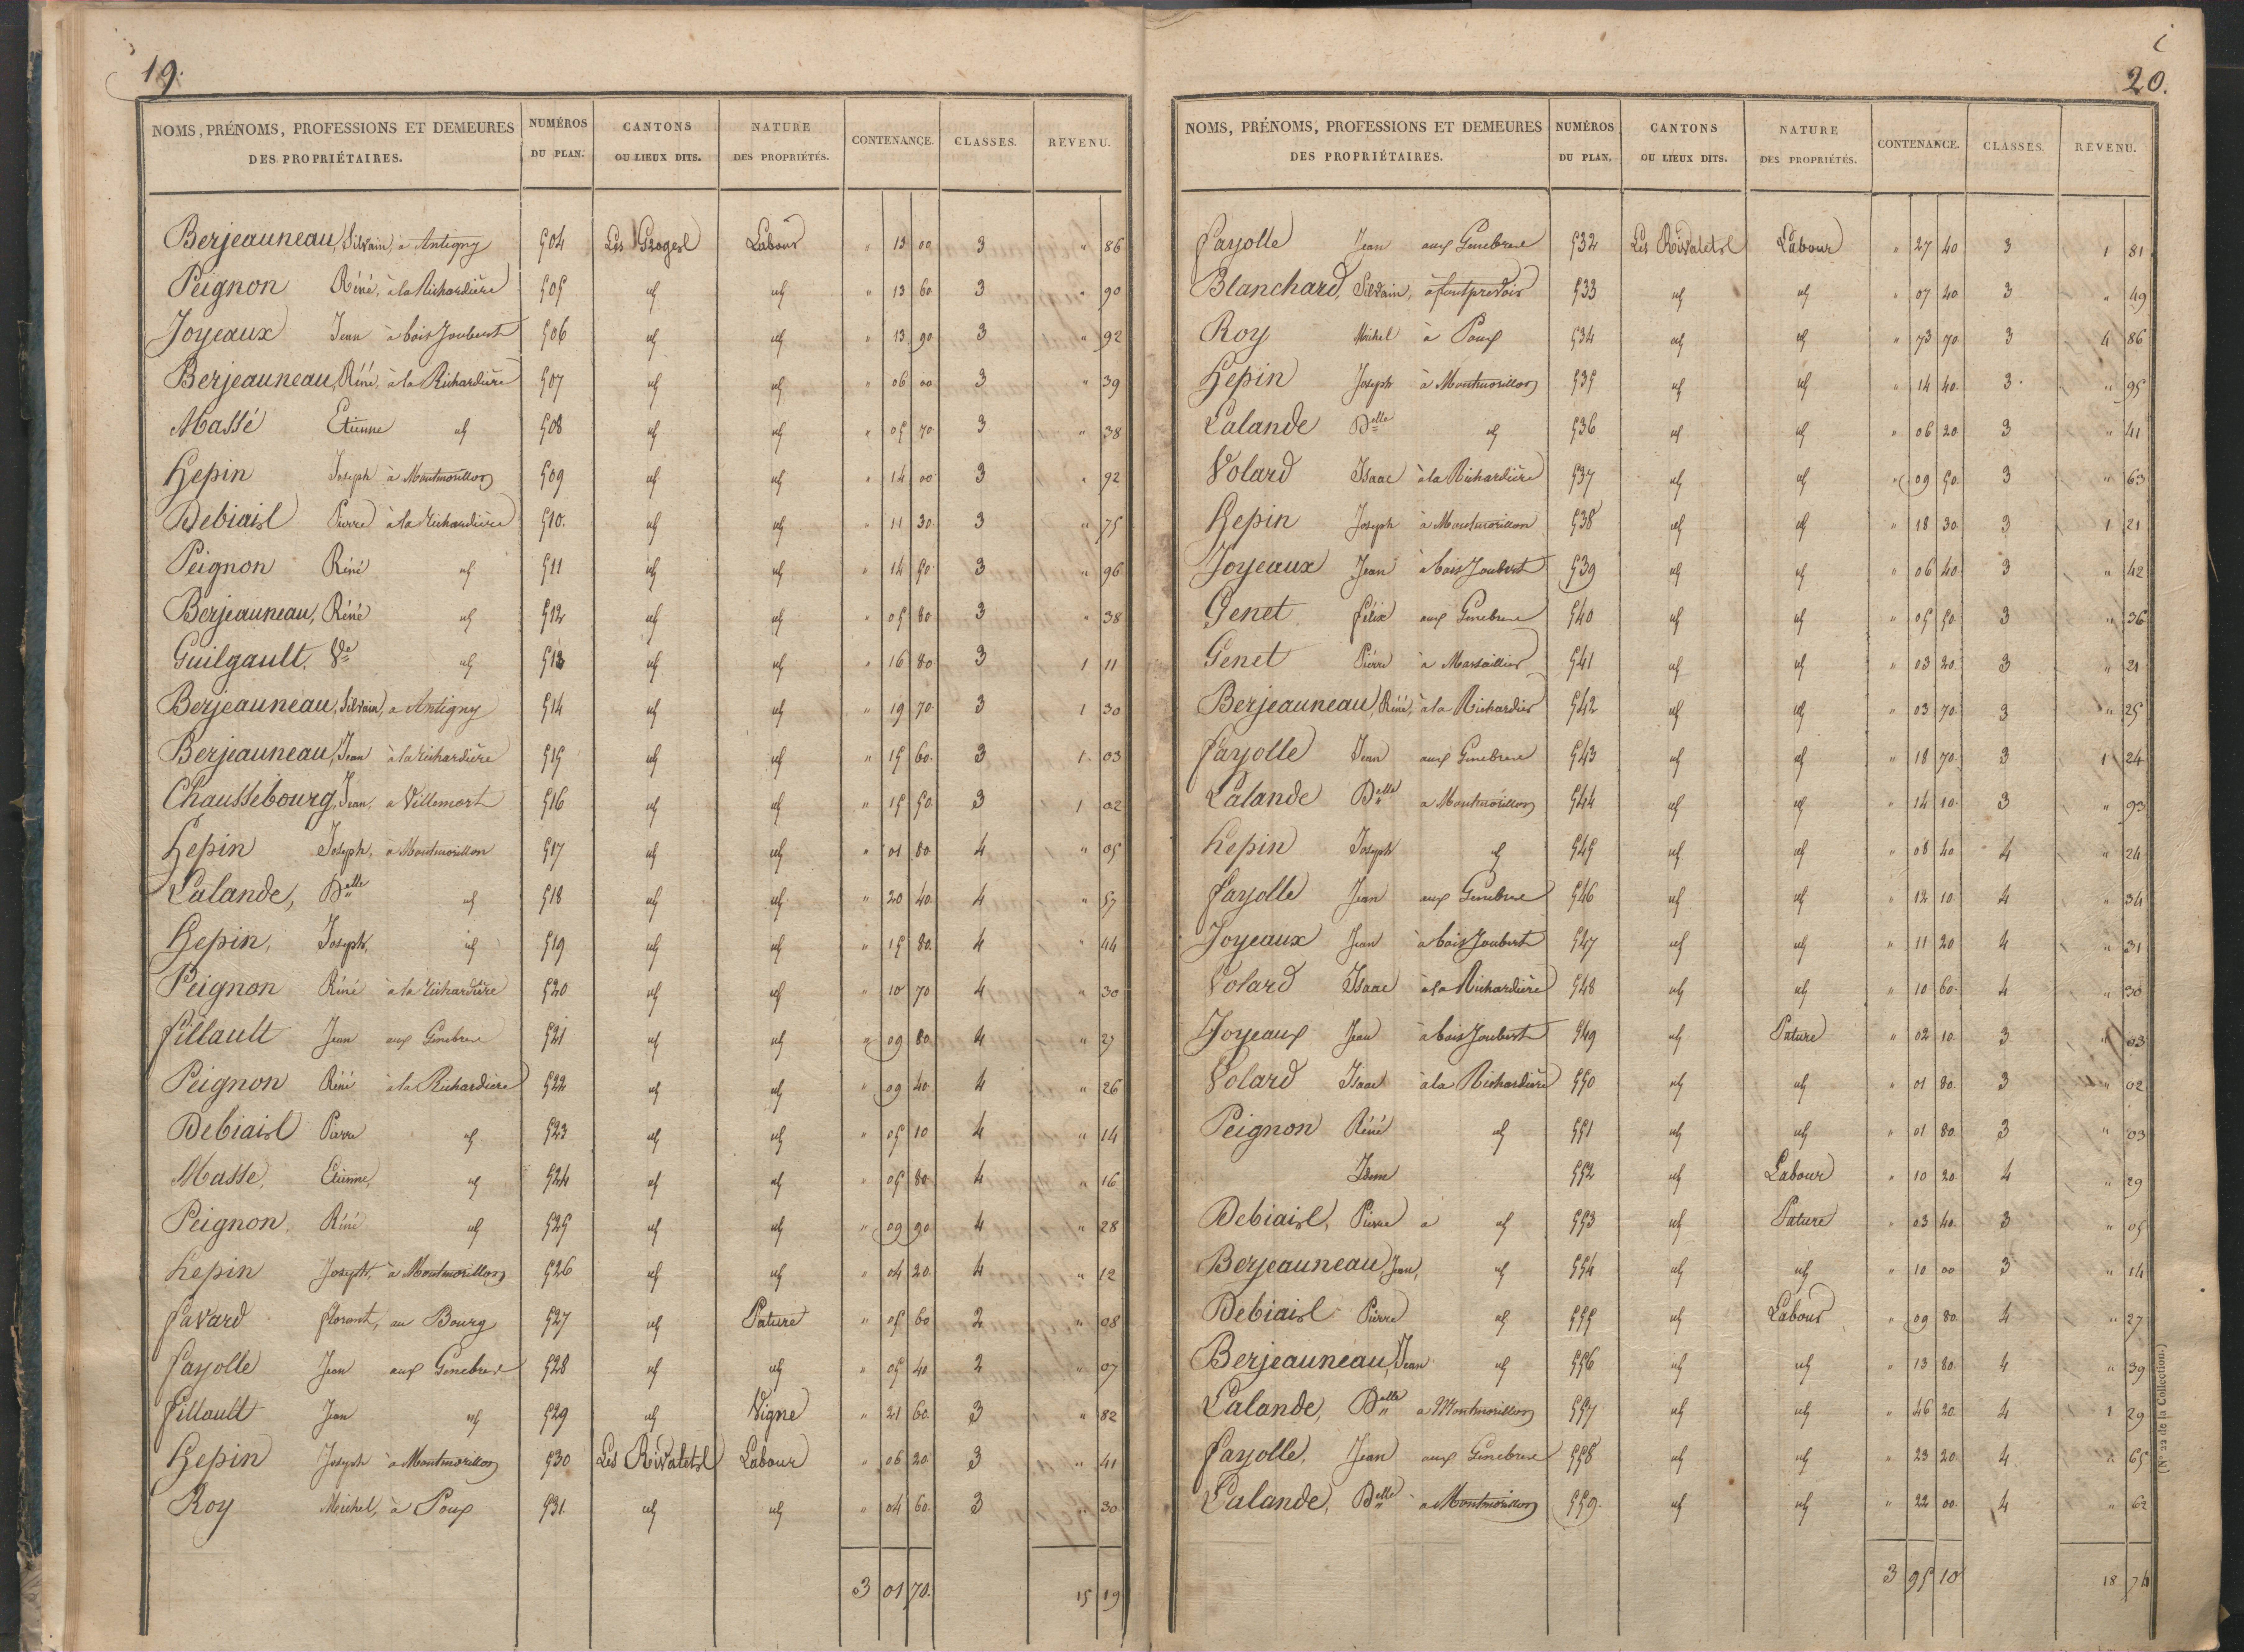 19.
NOMS, PRÉNOMS, PROFESSIONS ET DEMEURES DES PROPRIÉTAIRES. NUMÉROS DU PLAN. CANTONS OU LIEUX DITS. NATURE DES PROPRIÉTÉS. CONTENANCE. CLASSES. REVENU.
Berjeauneau, Silvain, à Antigny 504 Les Labour " 13 00 3 " 86
Peignon Réné, à la Richardière 505 id id " 13 60 3 " 90
Joyeaux Jean à bois Joubert 506 id id " 13 90 3 " 92
Berjeauneau, Réné, à la Richardière 507 id id " 06 00 3 " 39
Massé Etienne id 508 id id " 05 70 3 " 38
Hepin Joseph à Montmorillon 509 id id " 14 00 3 " 92
Debiais Pierre à la Richardière 510. id id " 11 30 3 " 75
Peignon Réné id 511 id id " 14 50 3 " 96
Berjeauneau, Réné id 512 id id " 05 80 3 " 38
Guilgault, Ve id 513 id id " 16 80 3 1 11
Berjeauneau, Silvain, à Antigny 514 id id " 19 70 3 1 30
Berjeauneau, Jean à la Richardière 515 id id " 15 60 3 1 03
Chaussebourg, Jean, à Villemort 516 id id " 15 50 3 1 02
Hepin Joseph, à Montmorillon 517 id id " 01 80 4 " 05
Lalande, Delle id 518 id id " 20 40 4 " 57
Hepin, Joseph, id 519 id id " 15 80 4 " 44
Peignon Réné à la Richardière 520 id id " 10 70 4 " 30
Fillault Jean aux Genebres 521 id id " 09 80 4 " 27
Peignon Réné à la Richardière 522 id id " 09 40 4 " 26
Debiais Pierre id 523 id id " 05 10 4 " 14
Masse, Etienne, id 524 id id " 05 80 4 " 16
Peignon, Réné id 525 id id " 09 90 4 " 28
hepin Joseph, à Montmorillon 526 id id " 04 20 4 " 12
favard florent, au Bourg 527 id Pature " 05 60 2 " 08
fayolle Jean aux Genebres 528 id id " 05 40 2 " 07
Fillault Jean id 529 id Vigne " 21 60 3 " 82
Hepin Joseph à Montmorillon 530 Les Rivalets Labour " 06 20 3 " 41
Roy Michel, à Poux 531. id id " 04 60 3 " 30
3 01 70. 15 19
20.
NOMS, PRÉNOMS, PROFESSIONS ET DEMEURES DES PROPRIÉTAIRES. NUMÉROS DU PLAN. CANTONS OU LIEUX DITS. NATURE DES PROPRIÉTÉS. CONTENANCE. CLASSES. REVENU.
fayolle Jean aux Genebres 532 Les Rivalets Labour " 27 40 3 1 81
Blanchard, Silvain, à 533 id id " 07 40 3 " 49
Roy Michel à Poux 534 id id " 73 70 3 4 86
Hepin Joseph à Montmorillon 535 id id " 14 40 3 " 95
Lalande Delle id 536 id id " 06 20 3 " 41
Volard Isaac à la Richardière 537 id id " 09 50 3 " 63
Hepin Joseph à Montmorillon 538 id id " 18 30 3 1 21
Joyeaux Jean à bois Joubert 539 id id " 06 40 3 " 42
Genet félix aux Genebres 540 id id " 05 50 3 " 36
Genet Pierre à 541 id id " 03 20 3 " 21
Berjeauneau, Réné, à la Richardier 542 id id " 03 70 3 " 25
fayolle Jean aux Genebres 543 id id " 18 70 3 1 24
Lalande Delle à Montmorillon 544 id id " 14 10 3 " 93
hepin Joseph id 545 id id " 08 40 4 " 24
fayolle Jean aux Genebres 546 id id " 12 10 4 " 34
Joyeaux Jean à bois Joubert 547 id id " 11 20 4 " 31
Volard Isaac à la Richardière 548 id id " 10 60 4 " 30
Joyeaux Jean à bois Joubert 549 id Pature " 02 10 3 " 03
Volard Isaac à la Richardière 550 id id " 01 80 3 " 02
Peignon Réné id 551 id id " 01 80 3 " 03
Idem 552 id Labour " 10 20 4 " 29
Debiais, Pierre à id 553 id Pature " 03 40 3 " 05
Berjeauneau Jean, id 554 id id " 10 00 3 " 14
Debiais Pierre id 555 id Labour " 09 80 4 " 27
Berjeauneau, Jean id 556 id id " 13 80 4 " 39
Lalande, Delle à Montmorillon 557 id id " 46 20 4 1 29
fayolle, Jean aux Genebres 558 id id " 23 20 4 " 65
Lalande, Delle à Montmorillon 559. id id " 22 00 4 " 62
3 95 10 18 74
(N° 22 de la Collection.)